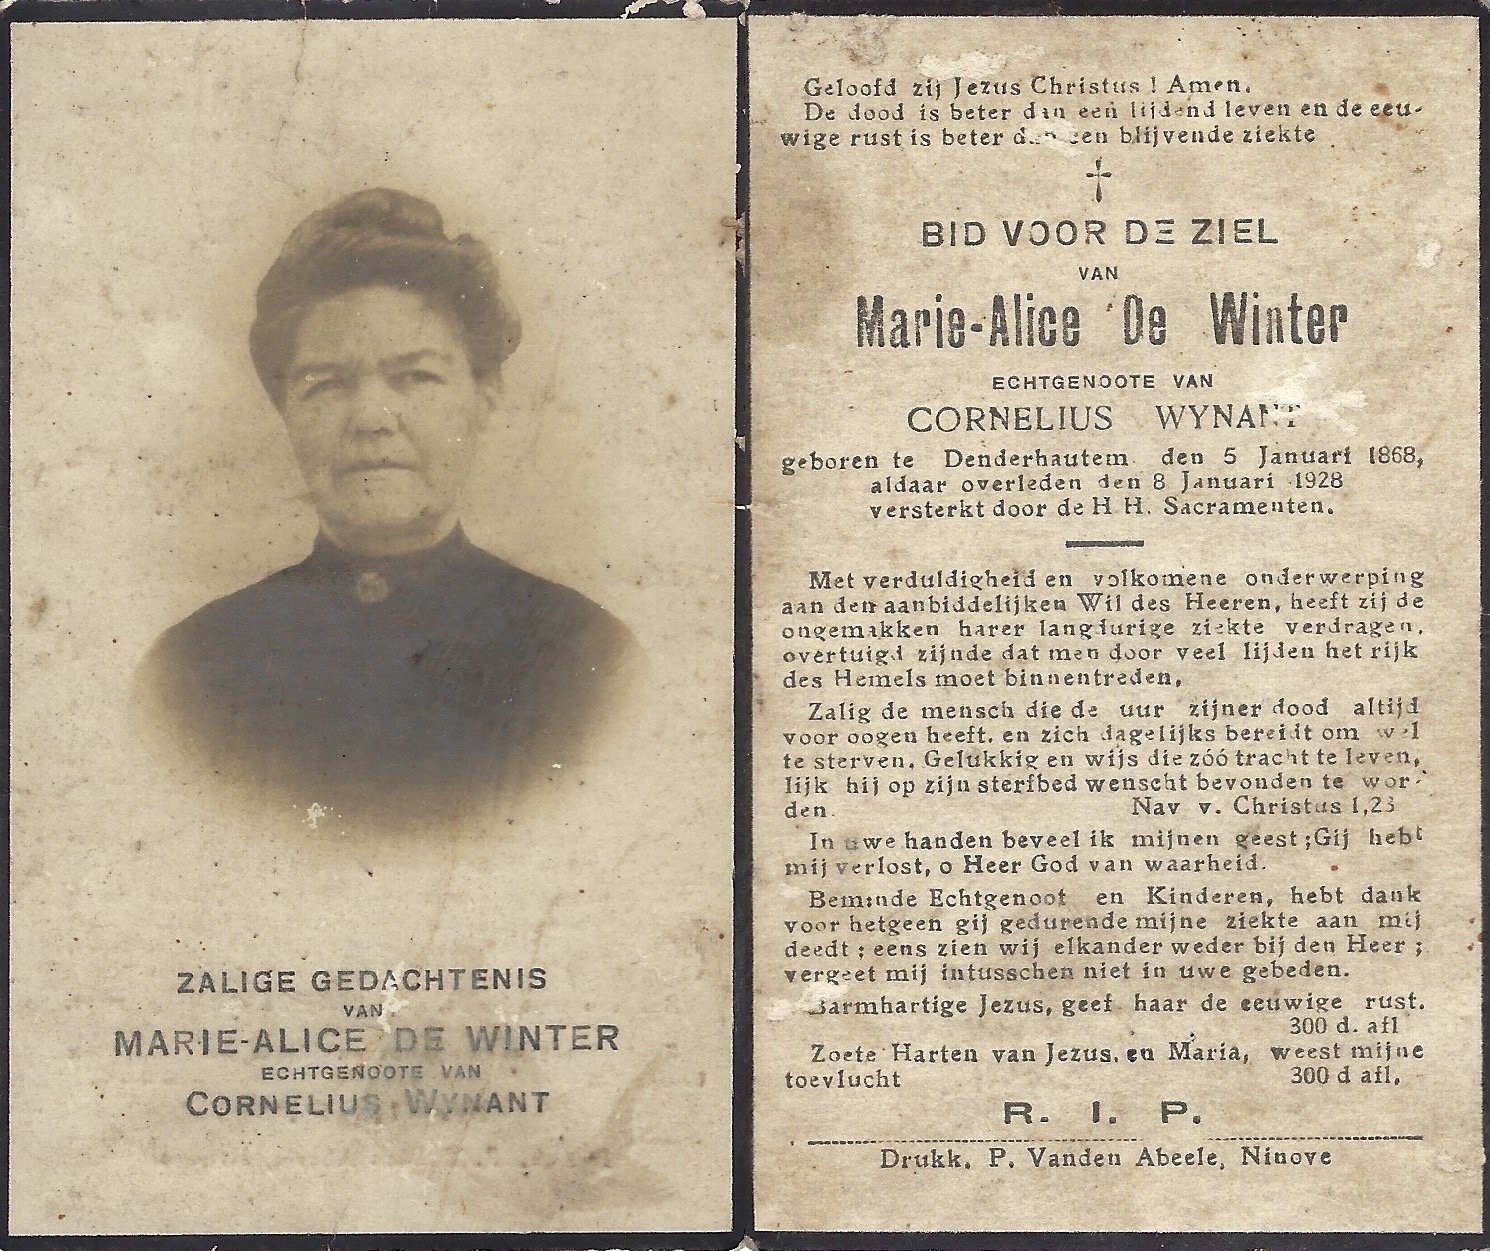 ZALIGE GEDACHTENIS
VAN
MARIE-ALICE DE WINTER
ECHTGENOOTE VAN
CORNELIUS WYNANT
Geloofd zij Jezus Christus ! Amen.
De dood is beter dan een lijdend leven en de eeu-
wige rust is beter dan een blijvende ziekte
BID VOOR DE ZIEL
VAN
Marie-Alice De Winter
ECHTGENOOTE VAN
CORNELIUS WYNANT
geboren te Denderhautem den 5 Januari 1868,
aldaar overleden den 8 Januari 1928
versterkt door de H H. Sacramenten.
Met verduldigheid en volkomene onderwerping
aan den aanbiddelijken Wil des Heeren, heeft zij de
ongemakken harer langdurige ziekte verdragen,
overtuigd zijnde dat men door veel lijden het rijk
des Hemels moet binnentreden,
Zalig de mensch die de uur zijner dood altijd
voor oogen heeft, en zich dagelijks bereidt om wel
te sterven. Gelukkig en wijs die zóó tracht te leven,
lijk hij op zijn sterfbed wenscht bevonden te wor-
den. Nav v. Christus 1,23
In uwe handen beveel ik mijnen geest ; Gij hebt
mij verlost, o Heer God van waarheid.
Beminde Echtgenoot en Kinderen, hebt dank
voor hetgeen gij gedurende mijne ziekte aan mij
deedt ; eens zien wij elkander weder bij den Heer ;
vergeet mij intusschen niet in uwe gebeden.
Barmhartige Jezus, geef haar de eeuwige rust.
300 d. afl
Zoete Harten van Jezus, en Maria, weest mijne
toevlucht 300 d afl.
R. I. P.
Drukk. P. Vanden Abeele, Ninove